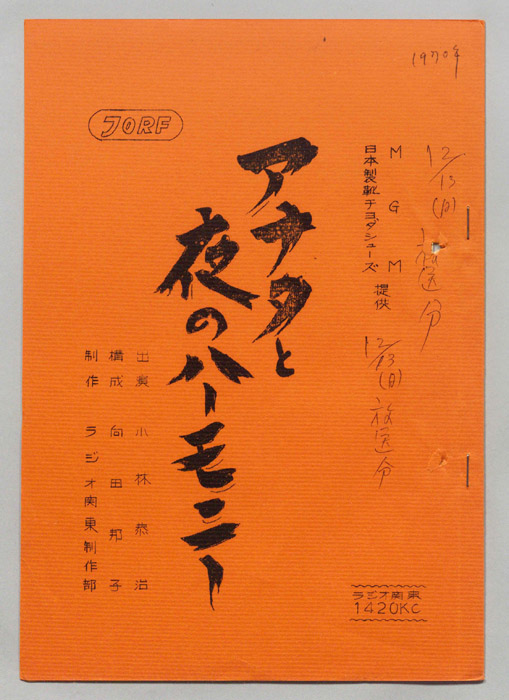 1970年
12/13(日)放送分
MGM
日本製靴チヨダシューズ
提供
12/13(日)放送分
JORF
アナタと
夜のハーモニー
出演 小林恭治
構成 向田邦子
制作 ラジオ関東制作部
ラジオ関東
1420KC